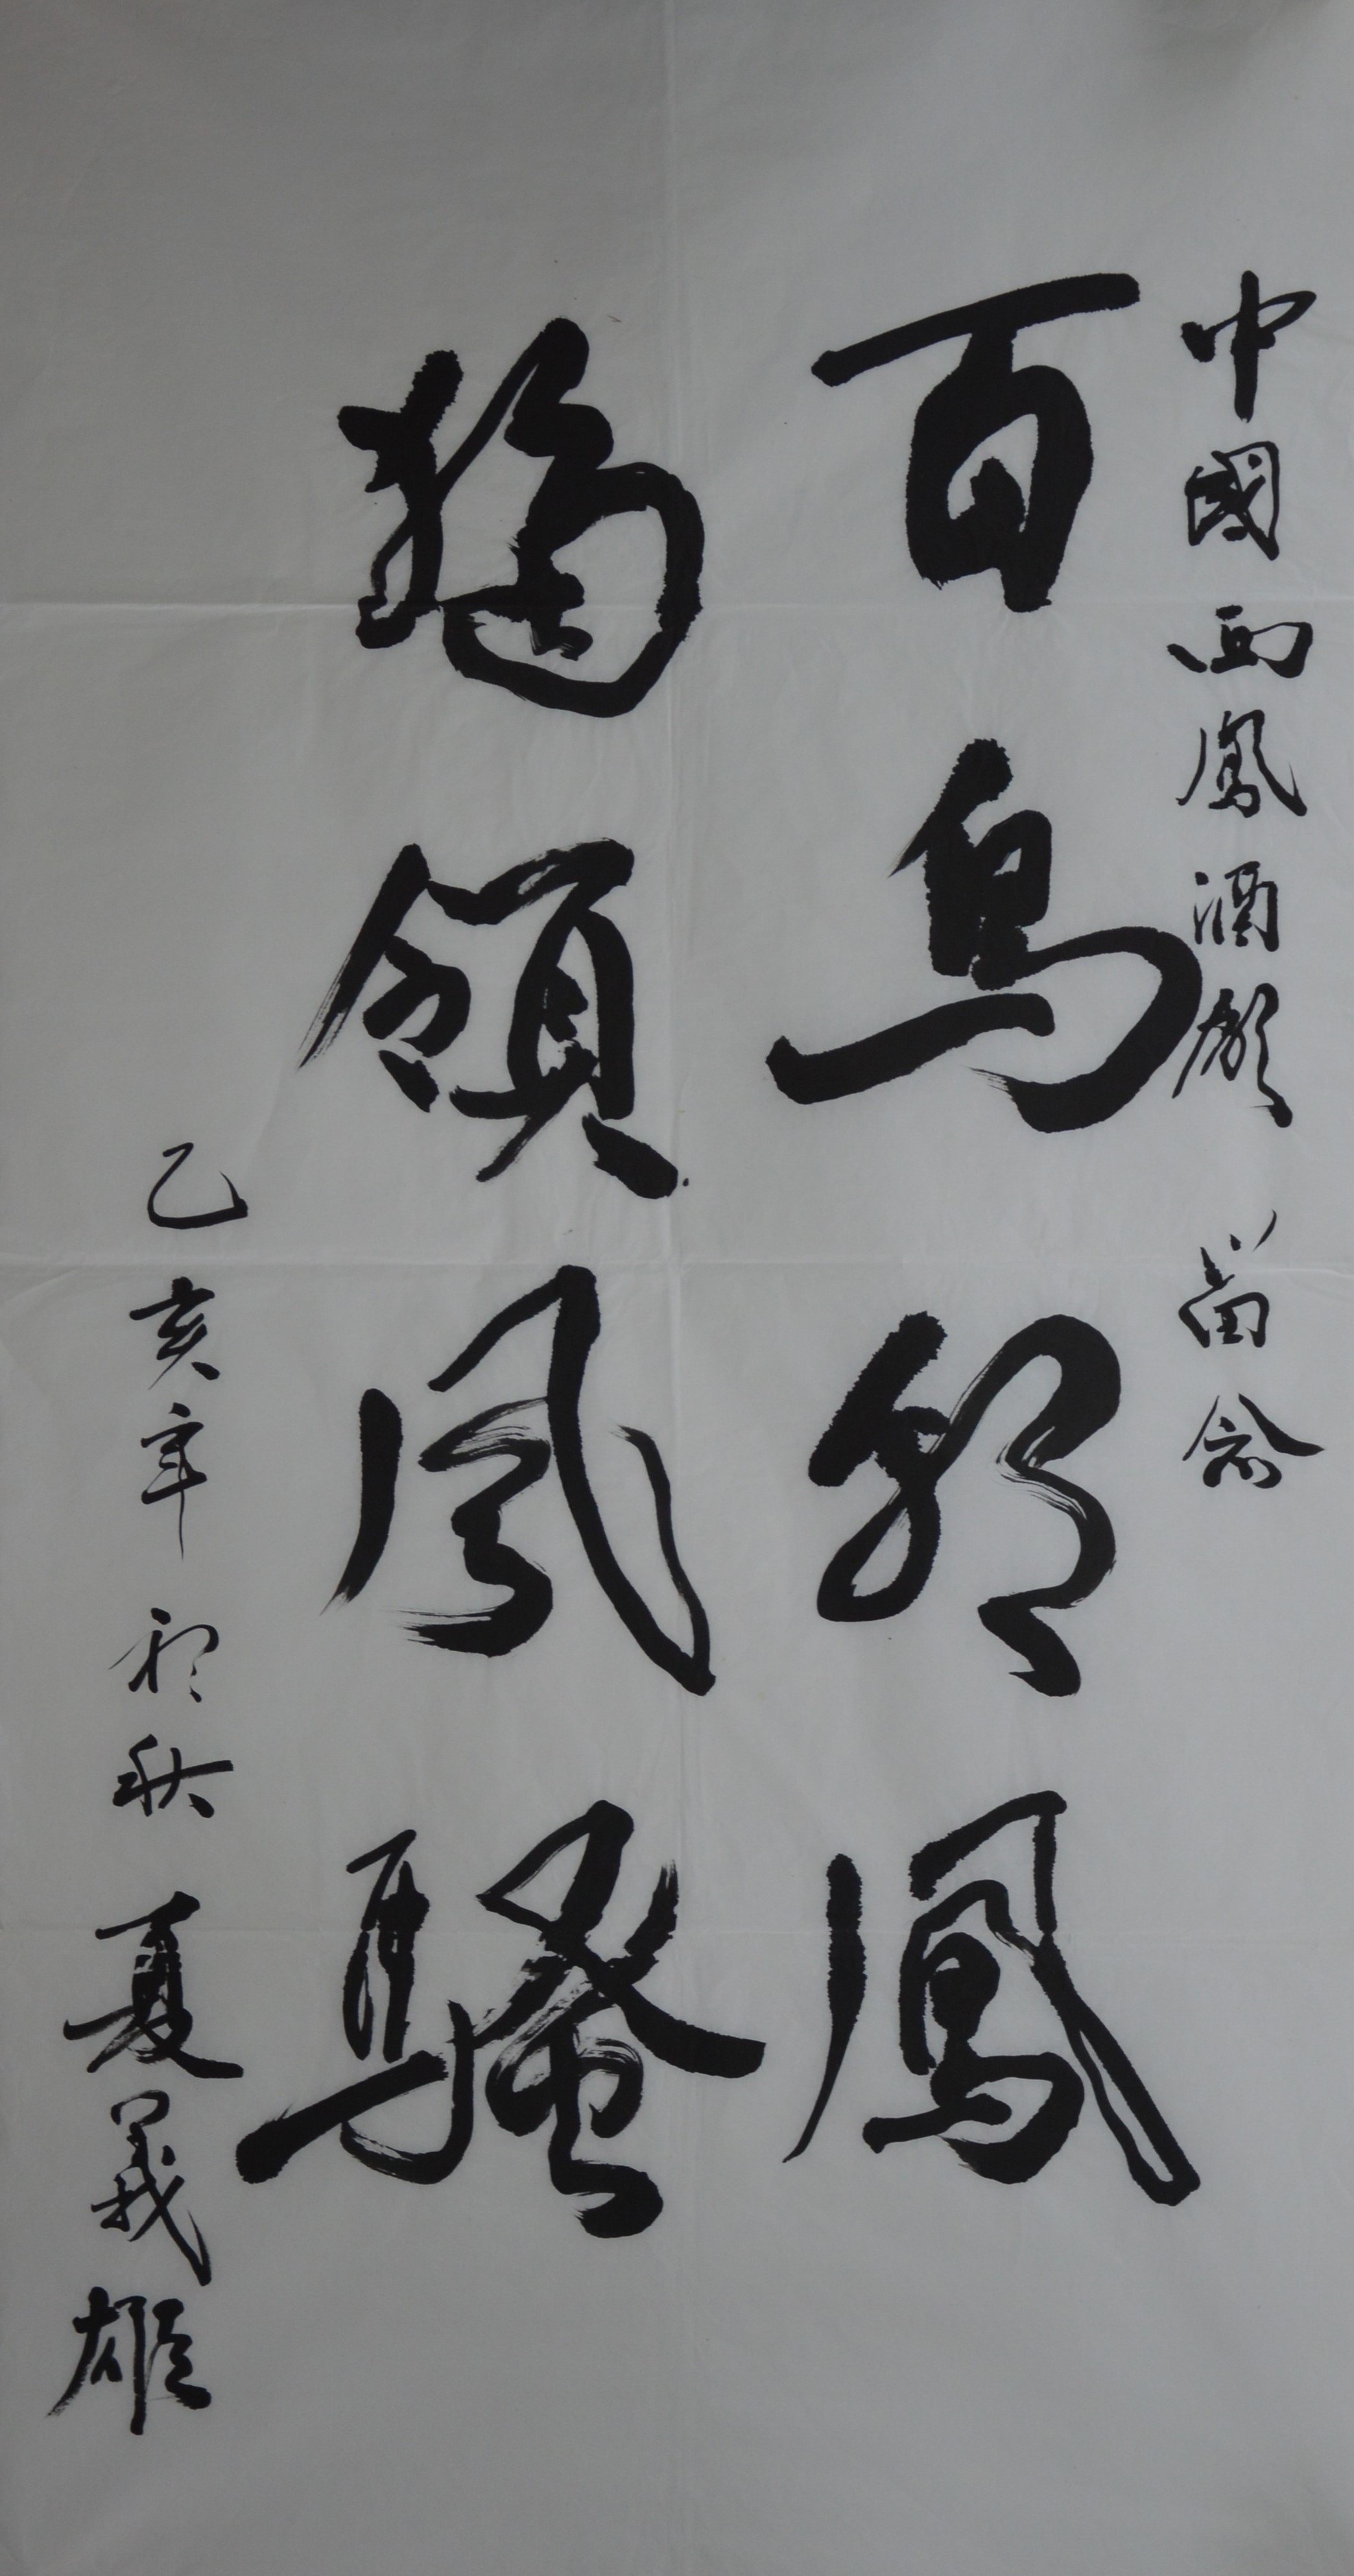 中國西鳳酒廠 留念
百鳥朝鳳
獨領風騷
乙亥年 初秋 夏義雄